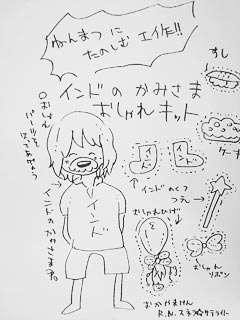 ねんまつに
たのしむ工作!!
インドのかみさま
おしゃれキット
すし
ケーキ
インド
インド
インドのくつ
つえ
おしゃれひげ
おしゃれ
リボン
インド
インドのかみさま
おかやまけん
R.N.スネフ☆サテライト